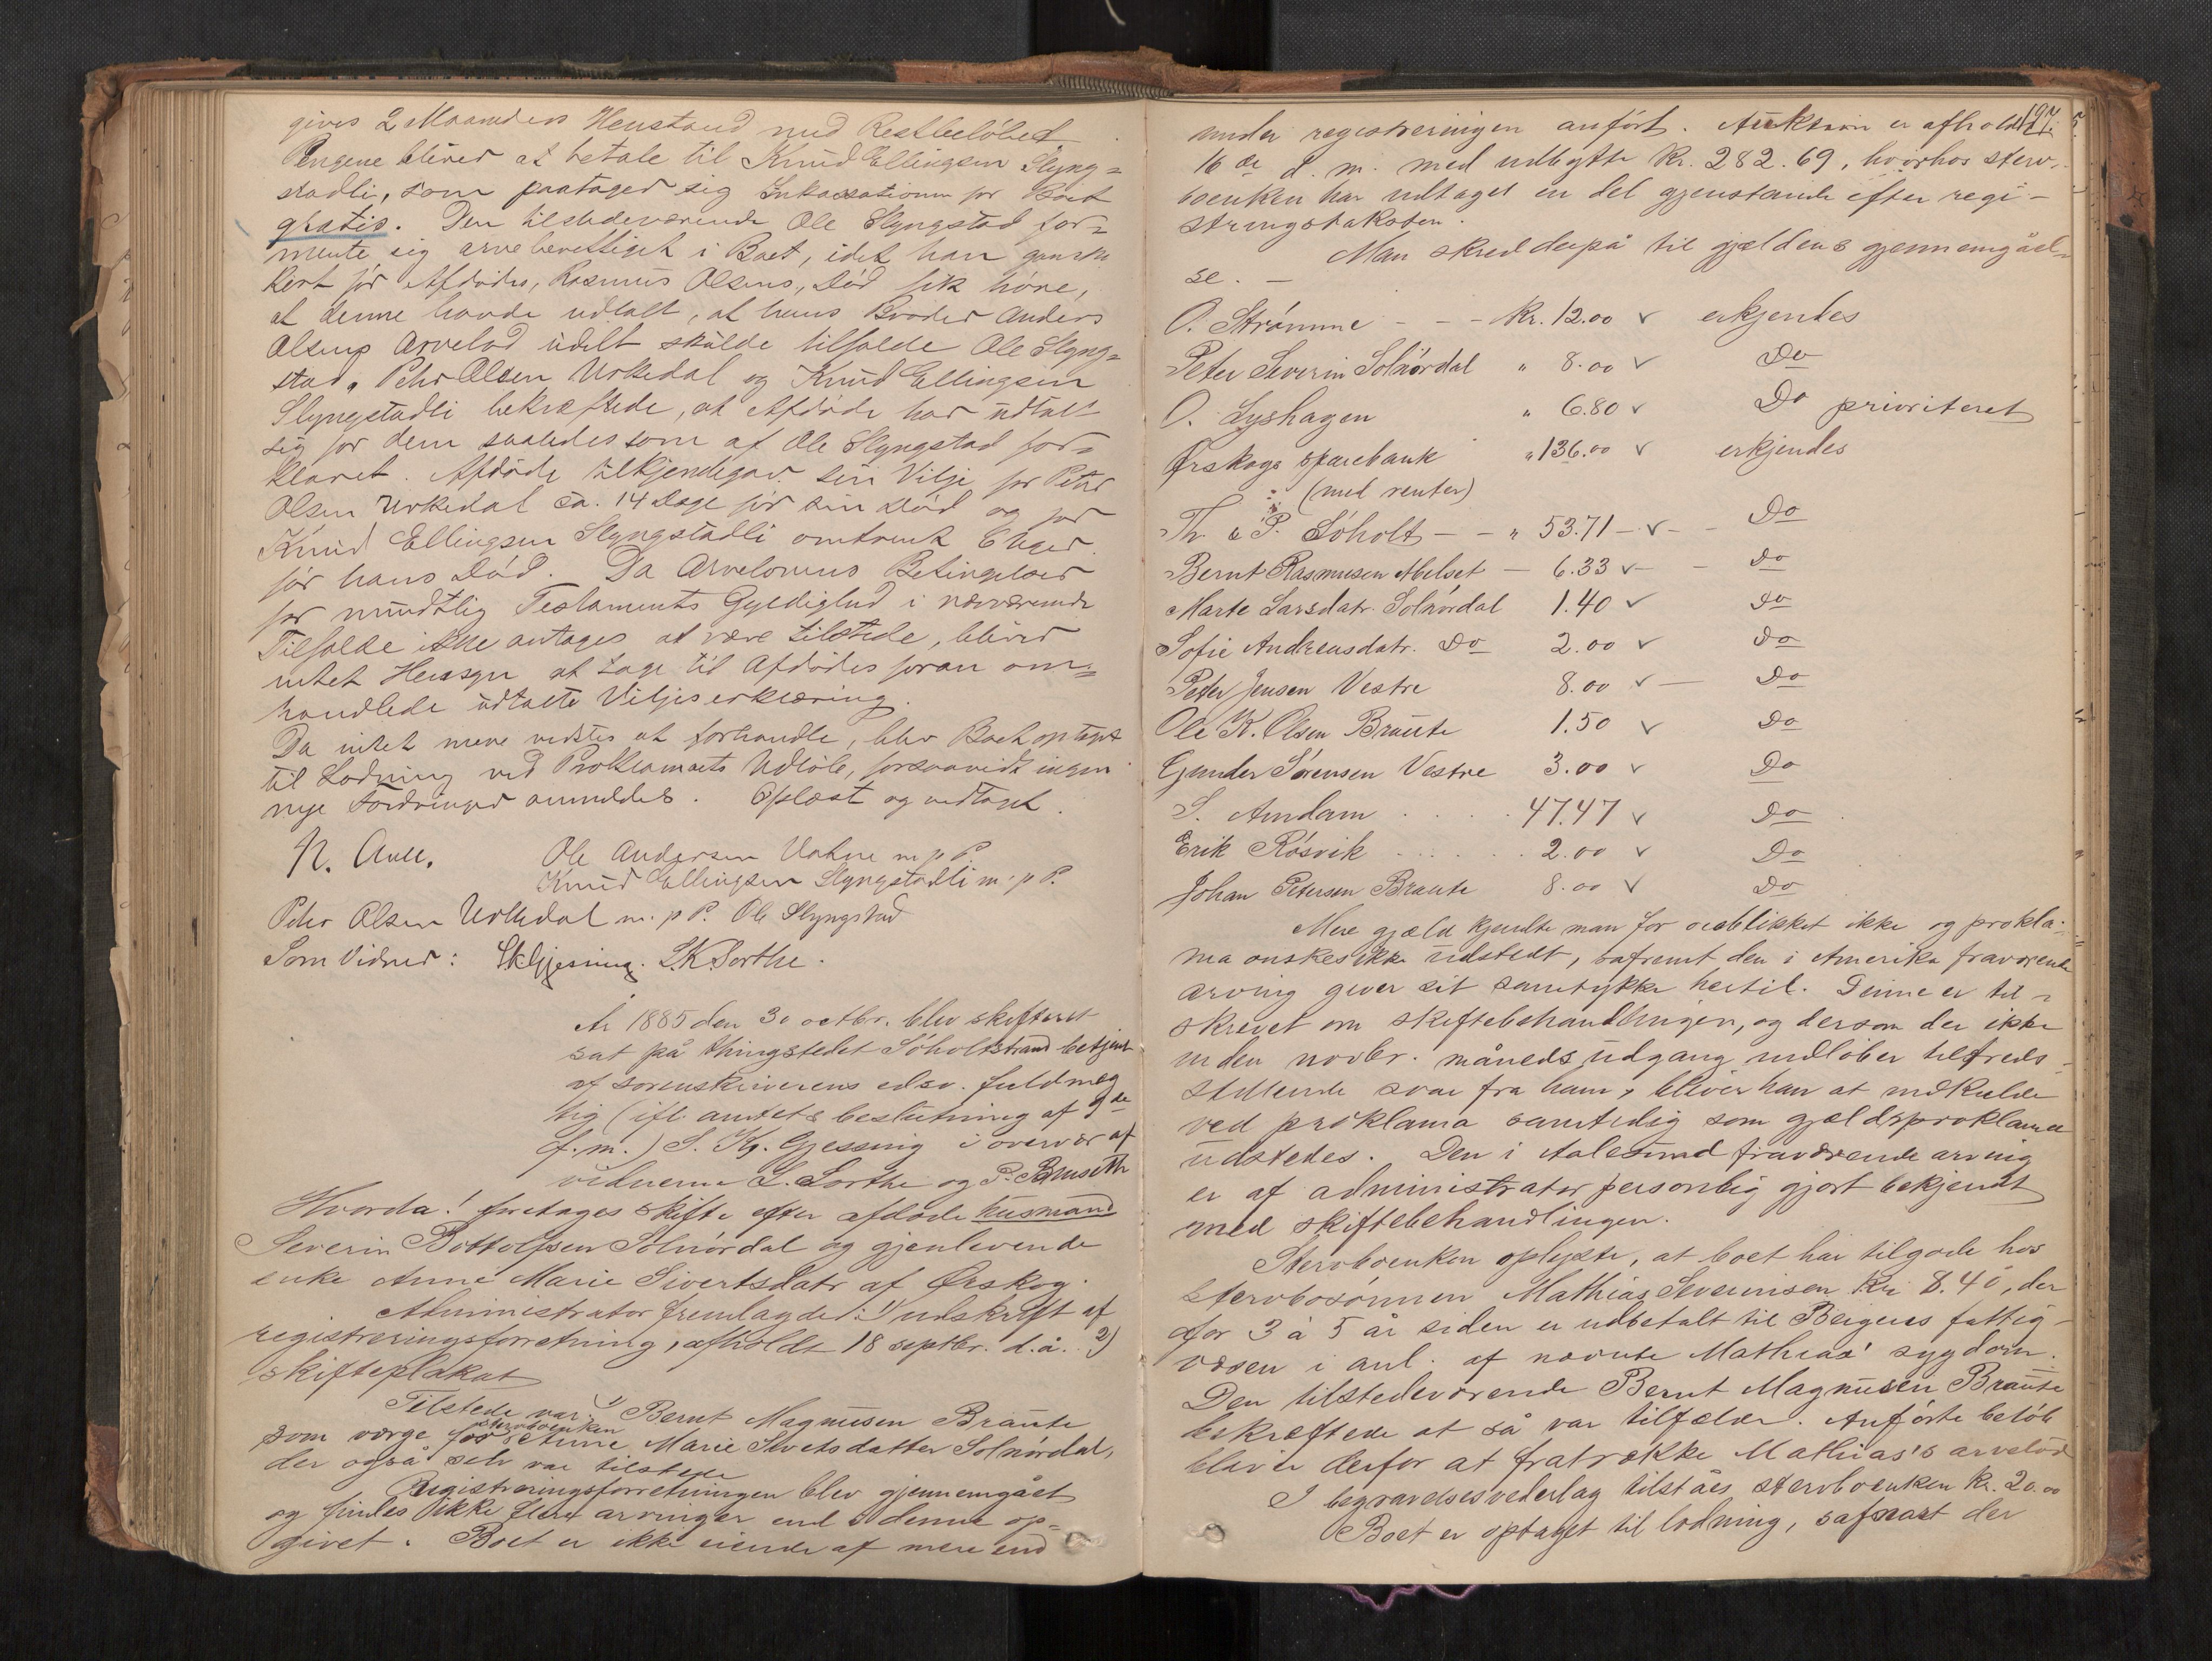 gives 2 Maaneders Henstand med Restbeløbet
Pengene bliver at betale til Knud Ellingsen Slyng=
stadli, som paatager sig Inkassationen for Boet
gratis. Den tilstedeværende Ole Slyngstad for=
mente sig arveberettiget i Boet, idet han ganske
kort før Afdødes, Rasmus Olsens, Død fik høre,
at denne havde udtalt, at hans Broder Anders
Olsens Arvelod udelt skulde tilfalde Ole Slyng=
stad. Peter Olsen Urkedal og Knud Ellingsen
Slyngstadli bekræftede, at Afdøde har udtalt
sig for dem saaledes som af Ole Slyngstad for=
klaret. Afdøde tilkjendegav sin Vilje for Peter
Olsen Urkedal ca. 14 Dage før sin Død og for
Knud Ellingsen Slyngstadli omtrent 6 Uger
før hans Død. Da Arvelovens Betingelser
for mundtlig Testaments Gyldighed i nærværende
Tilfælde ikke antages at være tilstede, bliver
intet Hensyn at tage til Afdødes foran om=
handlede udtalte Viljeserklæring.
Da intet mere vidstes at forhandle, blev Boet optaget
til Lodning ved Proklamaets Udløb, forsaavidt ingen
nye Fordringer anmeldes. Oplæst og vedtaget.
N. Aall.
Ole Andersen Vahne m. p. P.
Knud Ellingsen Slyngstadli m. p. P.
Peter Olsen Urkedal m. p. P. Ole Slyngstad
Som Vidner: S.K. Gjessing. L.K. Sorthe.
År 1885 den 30 octbr. blev skifteret
sat på thingstedet Søholtstrand betjent
af sorenskriverens edsv. fuldmæg
tig (ifl. amtets beslutning af 9de
f. m.) S. Kg. Gjessing i overvær af
vidnerne L. Sorthe og P. Bruseth
Hvorda! foretages skifte efter afdøde husmand
Severin Bottolfsen Solnørdal og gjenlevende
enke Anne Marie Sivertsdatr af Ørskog.
Administrator fremlagde: 1) udskrift af
registreringsforretning, afholdt 18 septbr. d. å. 2)
skifteplakat
Tilstede var: 1) Bernt Magnusen Braute
som værge for stervboenken Anne Marie Sivertsdatter Solnørdal,
der også selv var tilstede
Registreringsforretningen blev gjennemgået
og findes ikke flere arvinger end i denne op=
givet. Boet er ikke eiende af mere end
197.
under registreringen anført. Auktion er afholdt
16de d. m. med udbytte kr. 282.69, hvorhos sterv-
boenken har udtaget en del gjenstande efter regi-
streringstaksten.
Man skred derpå til gjældens gjennemgåel-
se. –
O. Strømme - - - kr. 12.00 ✓ erkjendes
Peter Severin Solnørdal " 8.00 ✓ Do
O. Lyshagen " 6.80 ✓ Do prioriteret
Ørskogs sparebank " 136.00 ✓ erkjendes
(med renter)
Th & P. Søholt - - " 53.71 - ✓ - Do
Bernt Rasmusen Abelset - 6.33 ✓ - - Do
Marte Larsdatr. Solnørdal 1.40 ✓ Do
Sofie Andreasdatr. Do 2.00 ✓ Do
Peter Jensen Vestre 8.00 ✓ - Do
Ole K. Olsen Braute 1.50 ✓ Do
Gunder Sørensen Vestre 3.00 ✓ Do
S. Amdam . . . . 47.47 ✓ Do
Erik Røsvik . . . . . 2.00 ✓ Do
Johan Petersen Braute 8.00 ✓ Do
Mere gjæld kjendte man for øieblikket ikke og prokla-
ma ønskes ikke udstedt, såfremt den i Amerika fraværende
arving giver sit samtykke hertil. Denne er til-
skrevet om skiftebehandlingen, og dersom der ikke
inden novbr. måneds udgang indløber tilfreds-
stillende svar fra ham, bliver han at indkalde
ved proklama samtidig som gjældsproklama
udstedes. Den i Aalesund fraværende arving
er af administrator personlig gjort bekjendt
med skiftebehandlingen.
Stervboenken oplyste, at boet har tilgode hos
stervbosønnen Mathias Severinsen kr. 8.40, der
for 3 à 5 år siden er udbetalt til Bergens fattig-
væsen i anl. af nævnte Mathias' sygdom.
Den tilstedeværende Bernt Magnusen Braute
bekræftede at så var tilfældet. Anførte beløb
bliver derfor at fratrække Mathias's arvelod
I begravelsesvederlag tilståes stervboenken kr. 20.00
Boet er optaget til lodning, såsnart der